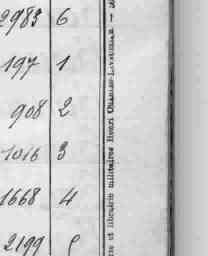 2983 6
197 1
908 2
1016 3
1668 4
2199
et librairie militaires Henri CHARLES-LAVAUZELLE